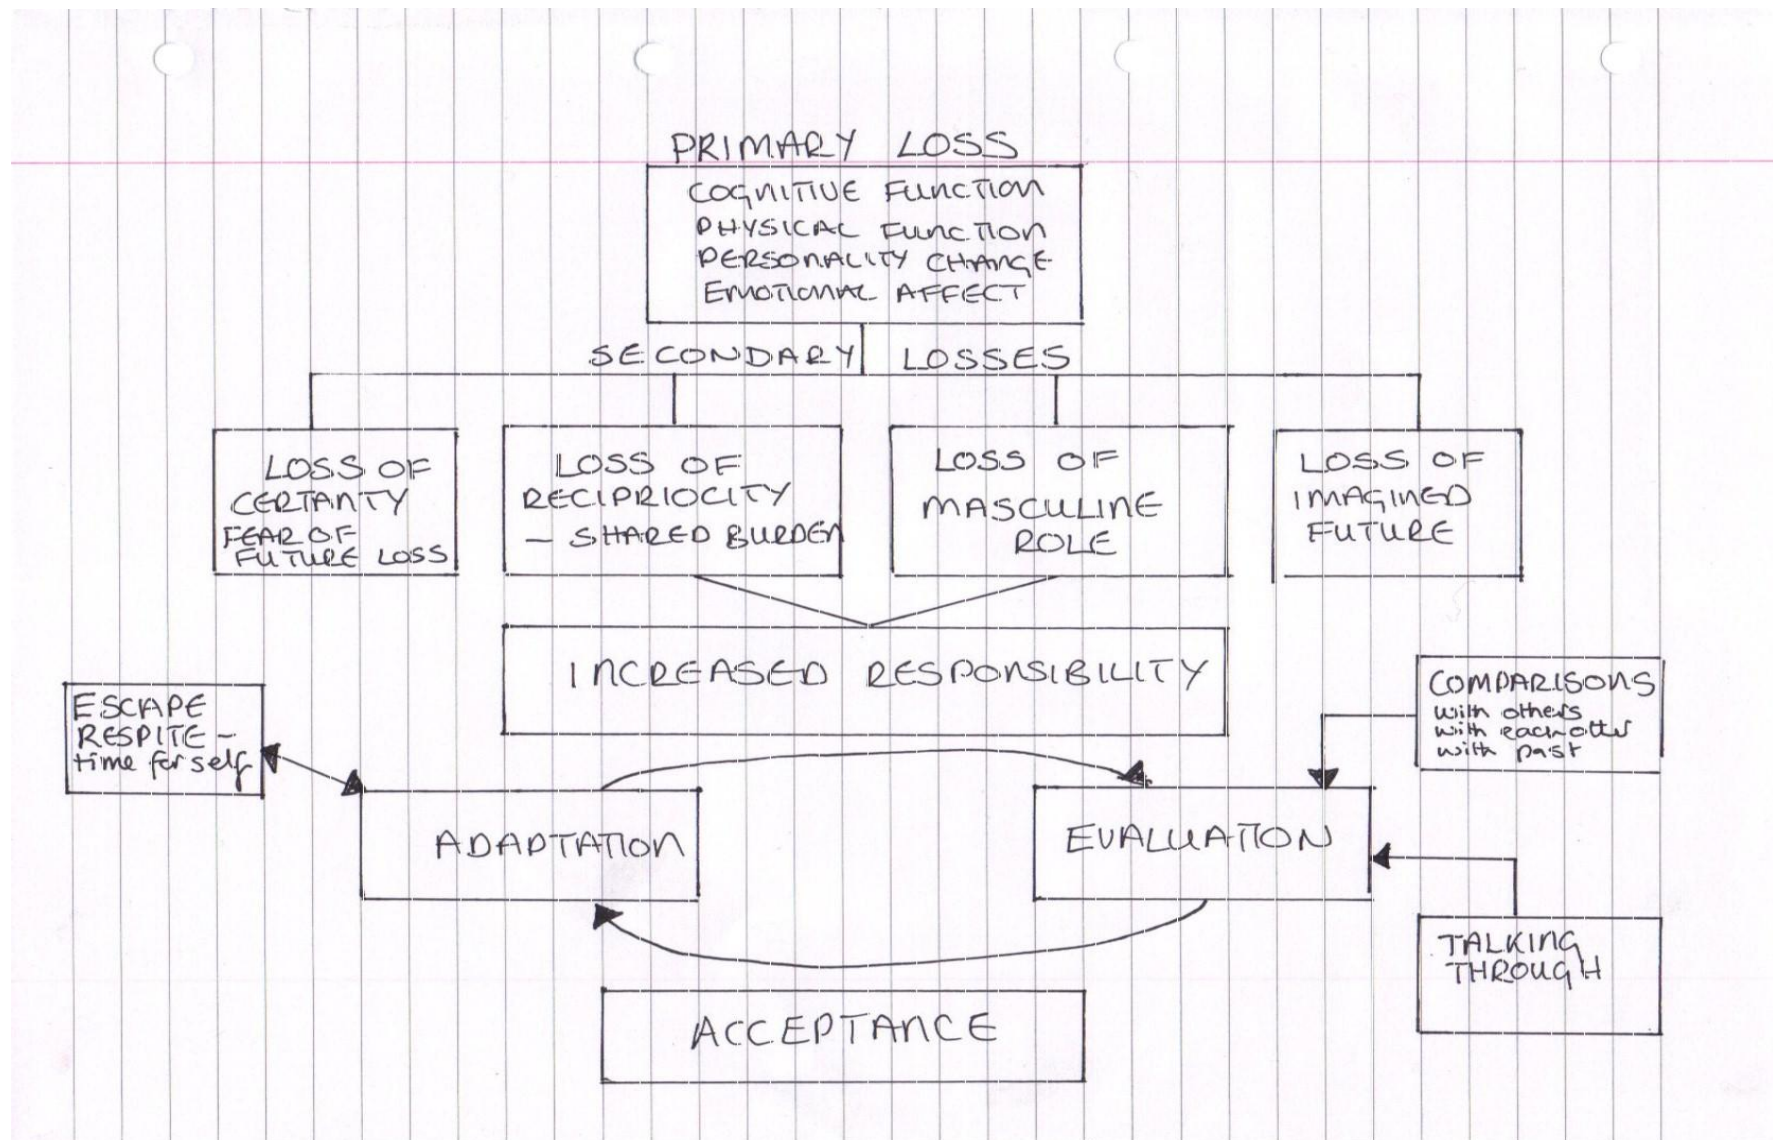 PRIMARY LOSS
COGNITIVE FUNCTION
PHYSICAL FUNCTION
PERSONALITY CHANGE
EMOTIONAL AFFECT
SECONDARY LOSSES
LOSS OF
CERTANTY
FEAR OF
FUTURE LOSS
LOSS OF
RECIPRIOCITY
- SHARED BURDEN
LOSS OF
MASCULINE
ROLE
LOSS OF
IMAGINED
FUTURE
INCREASED RESPONSIBILITY
ESCAPE
RESPITE -
time for self
COMPARISONS
with others
with each other
with past
ADAPTATION
EVALUATION
TALKING
THROUGH
ACCEPTANCE